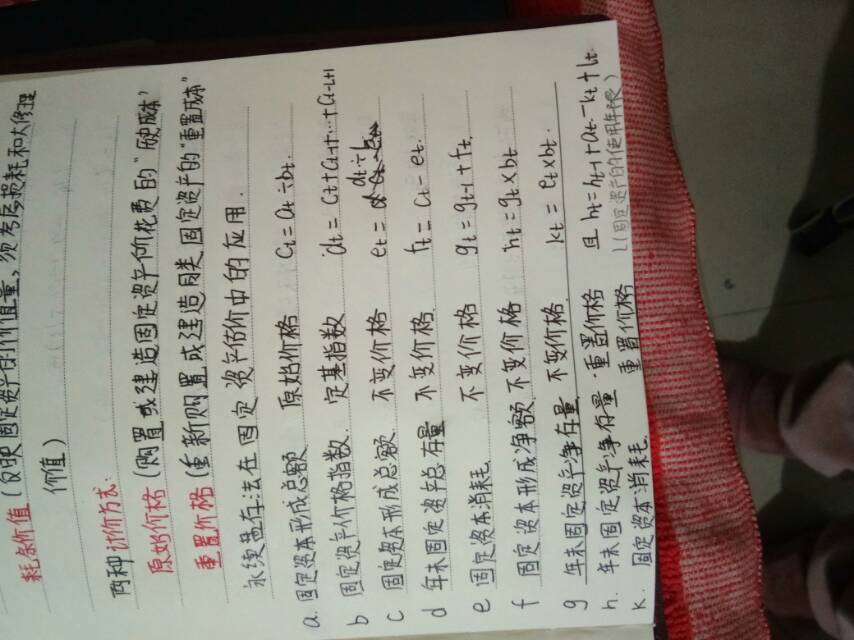 耗余价值(反映固定资产的价值量,须考虑损耗和大修理
价值)
两种计价方式:
原始价格(购置或建造固定资产所花费的“历史成本”
重置价格(重新购置或建造同类固定资产的“重置成本”
永续盘存法在固定资产估价中的应用.
a.固定资本形成总额 原始价格 Ct=at÷bt.
b 固定资产价格指数. 定基指数 dt=Ct+Ct-1+…+Ct-L+1
c 固定资本形成总额 不变价格 et=dt÷L
d 年末固定资产总存量 不变价格. ft=Ct-et.
e 固定资本消耗. 不变价格 gt=gt-1+ft.
f 固定资本形成净额 不变价格 ht=gt×bt
g 年末固定资产净存量 不变价格. kt=et×bt.
h. 年末固定资产净存量·重置价格 且ht=ht-1+at-kt+lt.
k. 固定资本消耗. 重置价格 L(固定资产的使用年限)